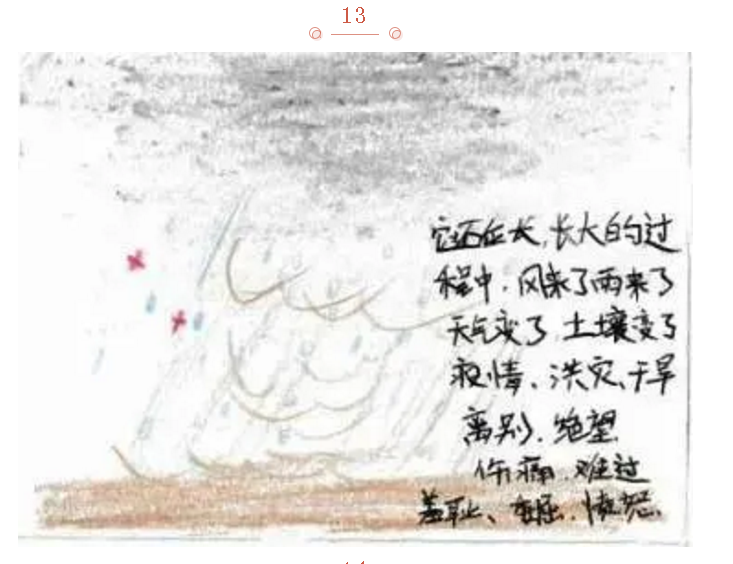 13
它还在长,长大的过
程中.风来了雨来了
天气变了,土壤变了
疫情、洪灾、干旱
离别.绝望
伤痛.难过
羞耻、委屈.愤怒.